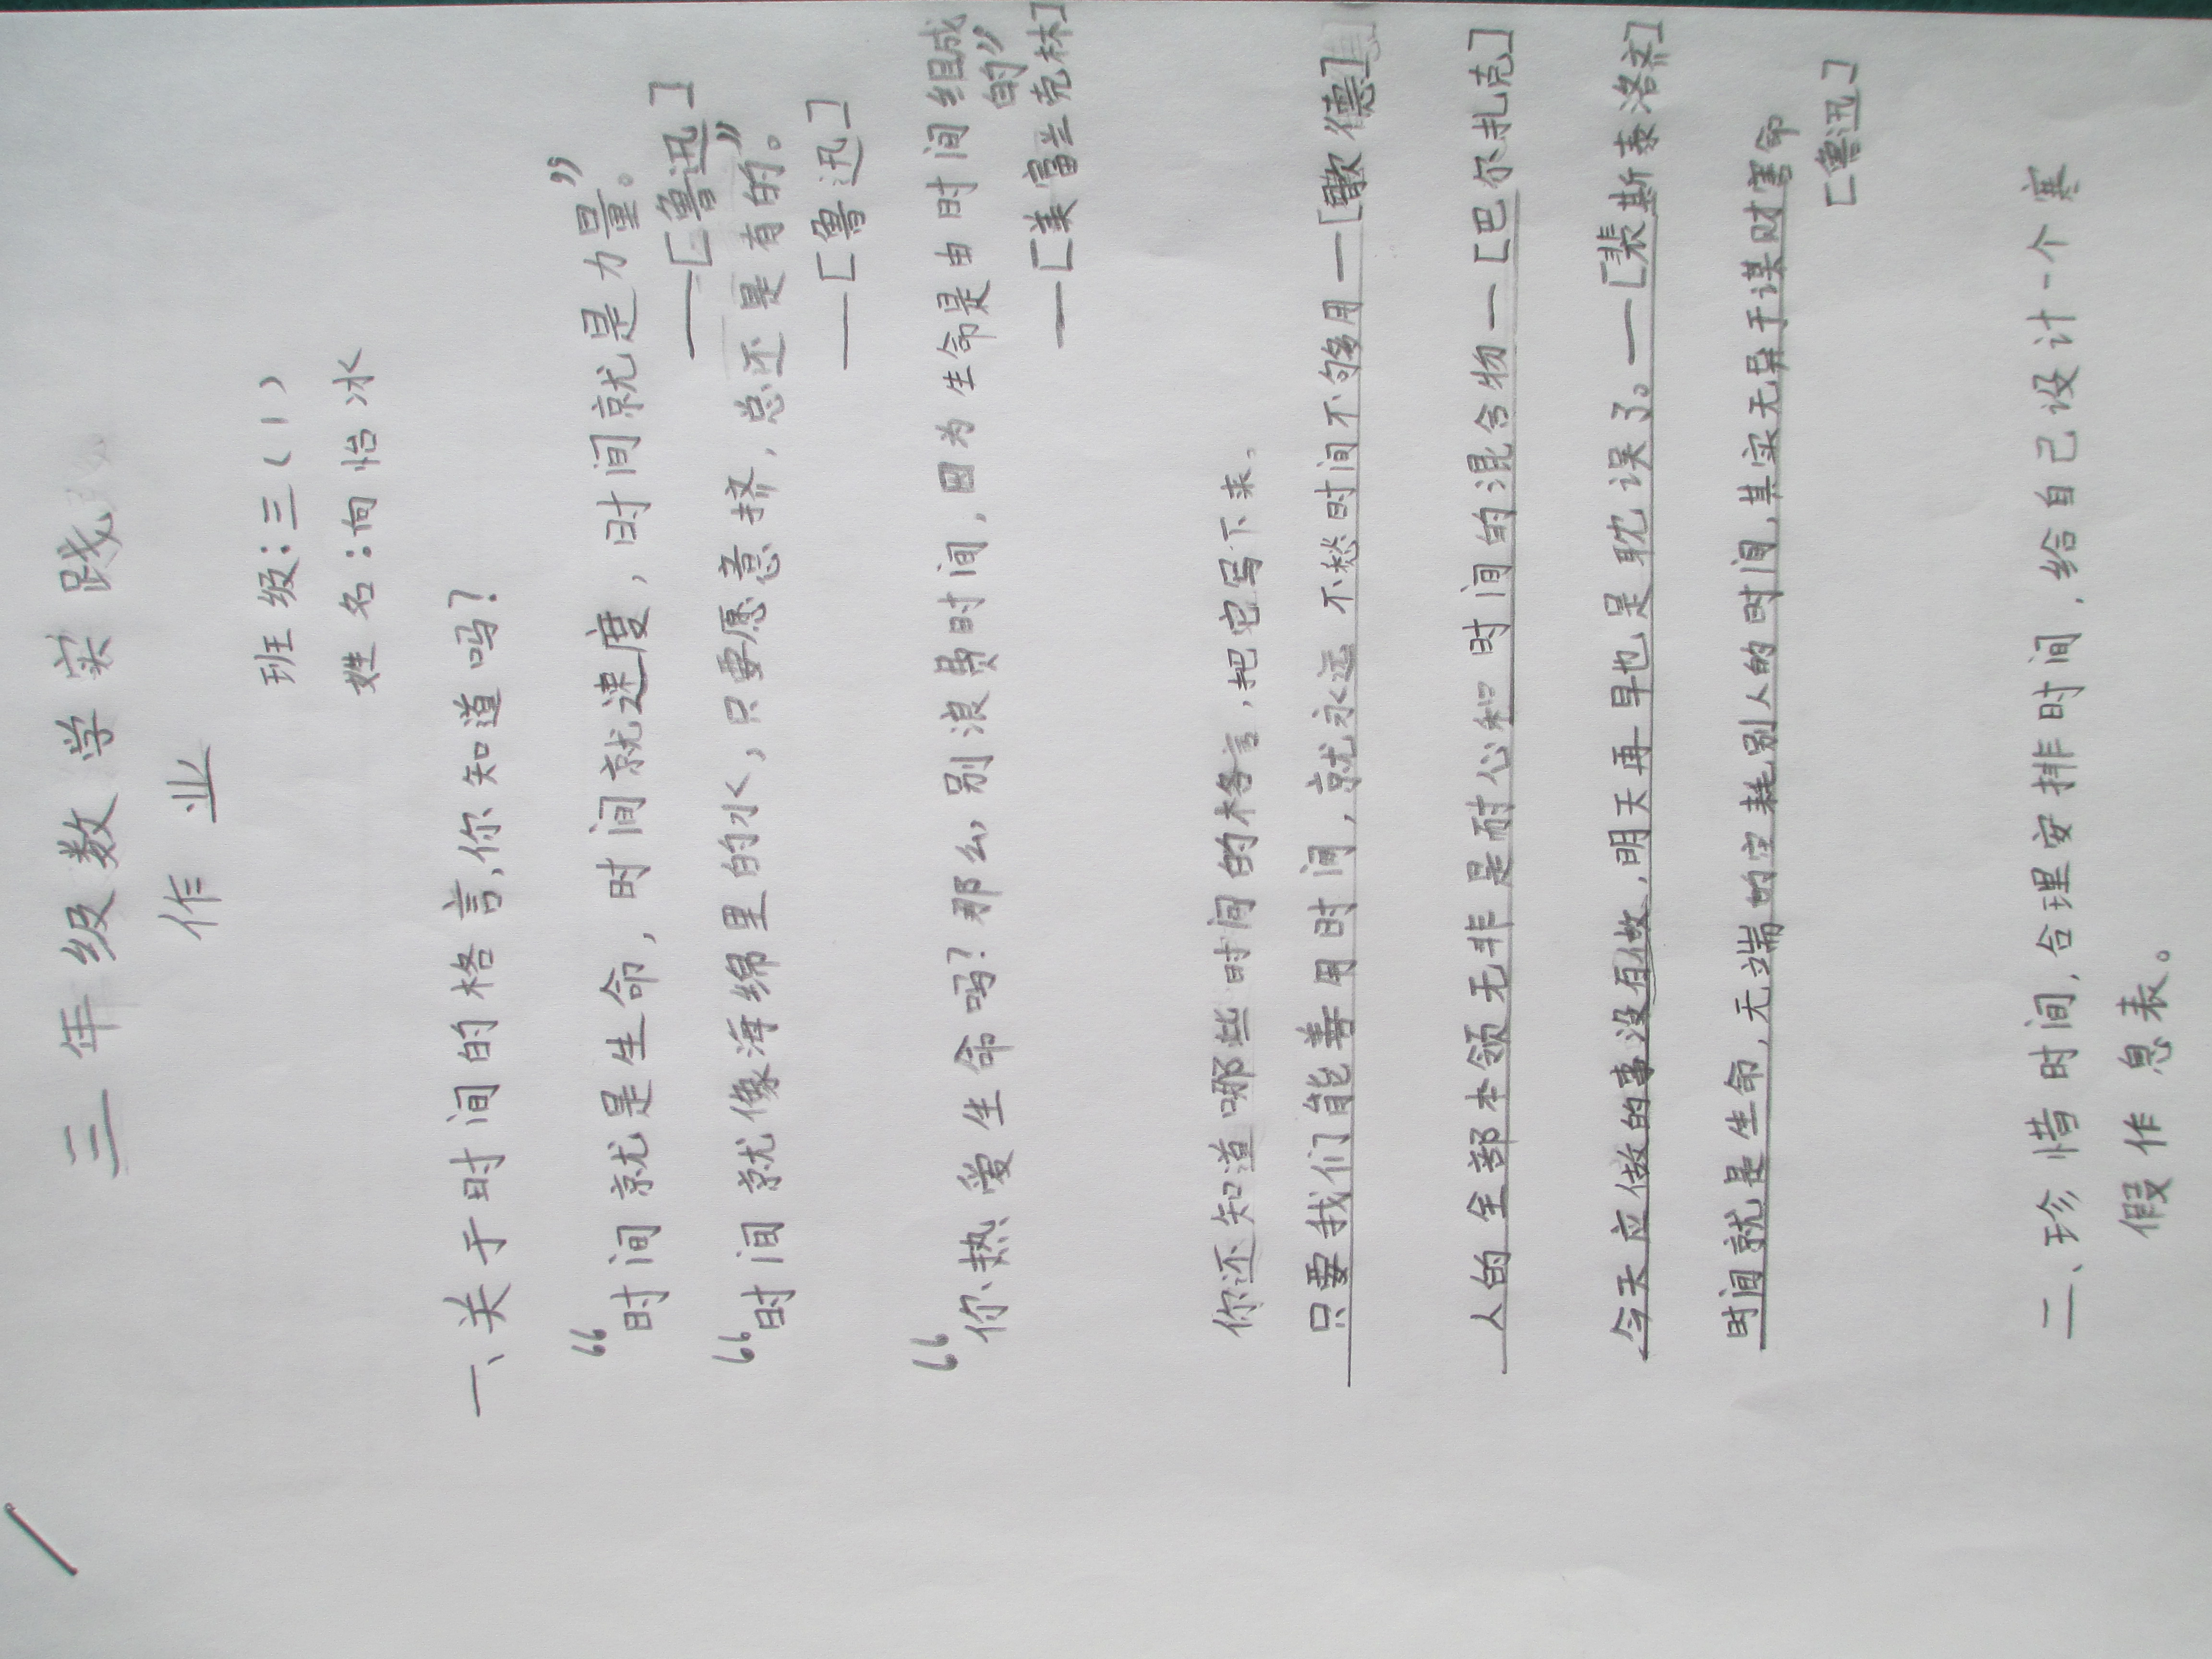 三年级数学实践
作业
班级:三(1)
姓名:向怡冰
一、关于时间的格言,你知道吗?
“时间就是生命,时间就速度,时间就是力量。”
——[鲁迅]
“时间就像海绵里的水,只要愿意挤,总还是有的。”
——[鲁迅]
“你热爱生命吗?那么别浪费时间,因为生命是由时间组成
的”
—[美富兰克林]
你还知道哪些时间的格言,把它写下来、
只要我们能善用时间,就永远不愁时间不够用—[歌德]
人的全部本领无非是耐心和时间的混合物—[巴尔扎克]
今天应做的事没有做,明天再早也是耽误了。—[裴斯泰洛齐]
时间就是生命,无端的空耗别人的时间,其实无异于谋财害命
[鲁迅]
二、珍惜时间,合理安排时间,给自己设计一个寒
假作息表。